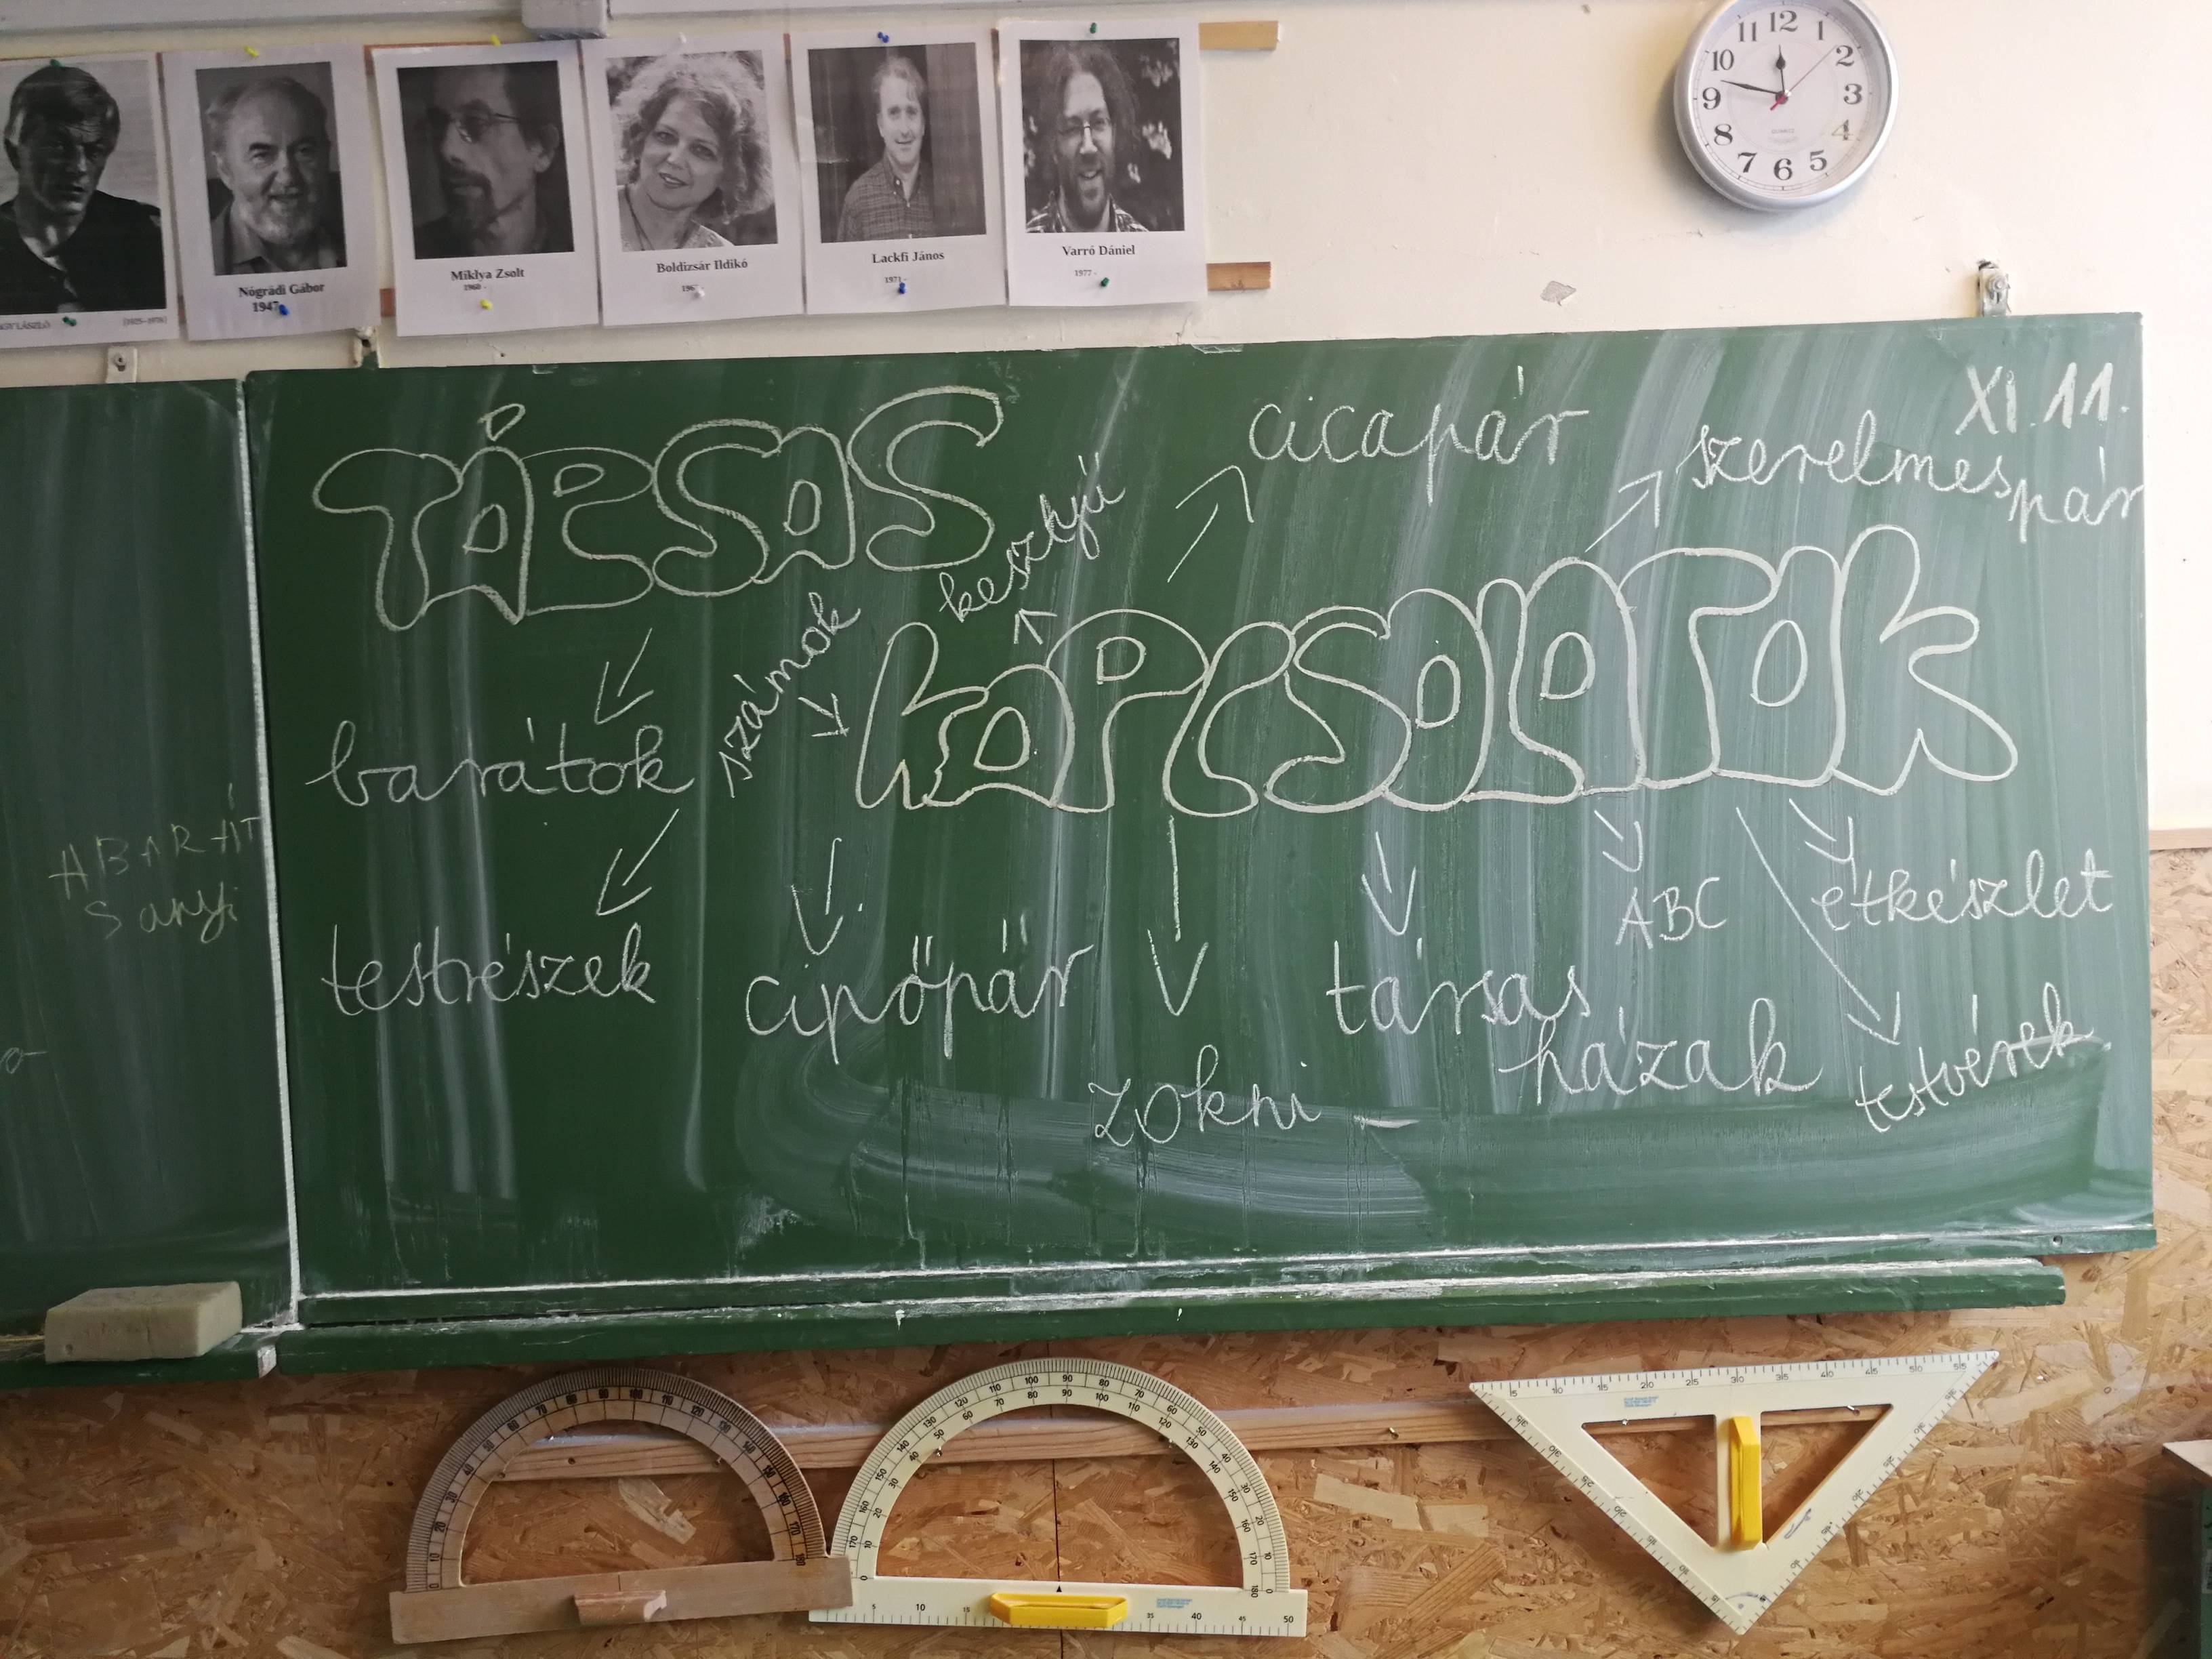 NAGY LÁSZLÓ (1925-1978)
Nógrádi Gábor
1947
Miklya Zsolt
1960 -
Boldizsár Ildikó
Lackfi János
1971 -
Varró Dániel
1977 -
12
1
2
3
4
5
6
7
8
9
10
11
QUARTZ
XI. 11.
TÁRSAS
KAPCSOLATOK
cicapár
szerelmes
pár
kesztyű
számok
barátok
testrészek
cipőpár
zokni
társas
házak
ABC
étkészlet
testvérek
ABARÁT
Sanyi